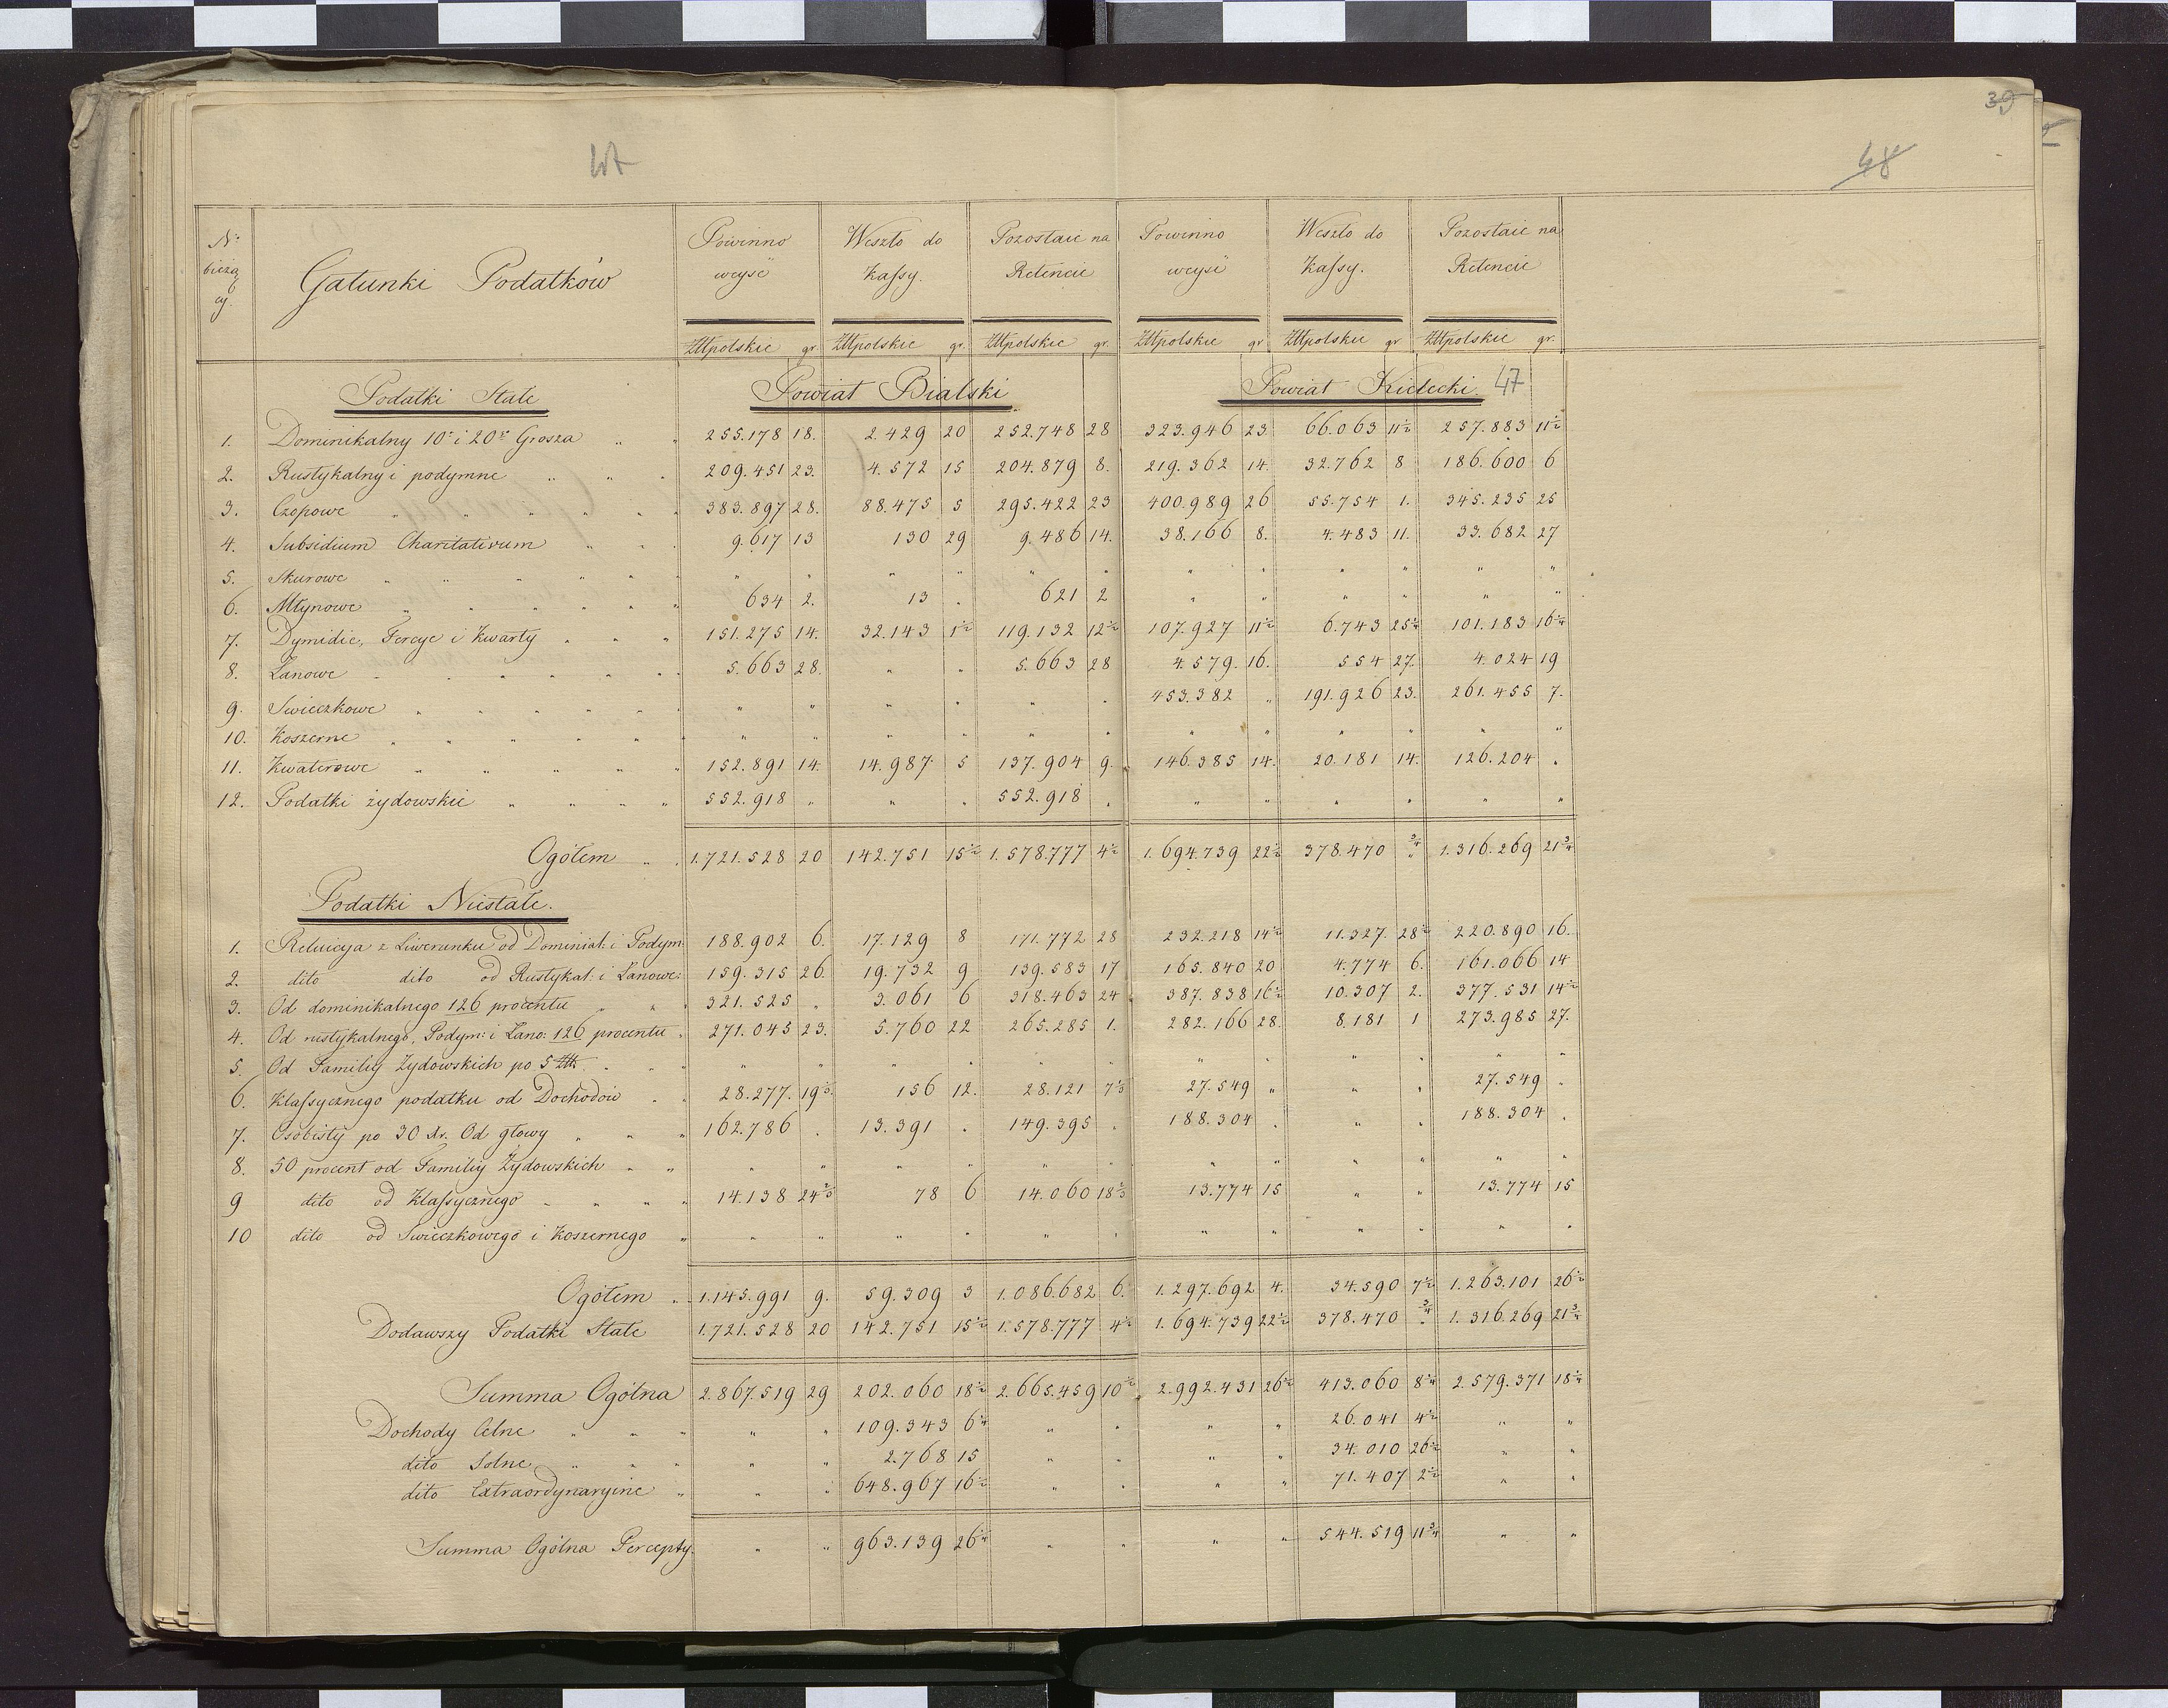 39
47
48
Nº bieżący.
Gatunki Podatków
Powinno weyść
Weszło do Kassy.
Pozostaie na Retencie
Powinno weyść
Weszło do Kassy.
Pozostaie na Retencie
Złłpolskie gr. Złłpolskie gr. Złłpolskie gr. Złłpolskie gr Złłpolskie gr Złłpolskie gr.
Podatki Stałe Powiat Bialski Powiat Kielecki. 47
1. Dominikalny 10º i 20º Grosza " " 255.178 18. 2.429 20 252.748 28 323.946 23 66.063 11½ 257.883 11½
2. Rustykalny i podymne " " " 209.451 23. 4.572 15 204.879 8. 219.362 14. 32.762 8 186.600 6
3. Czopowe " " " " " " 383.897 28. 88.475 5 295.422 23 400.989 26 55.754 1. 345.235 25
4. Subsidium Charitativum " " " 9.617 13 130 29 9.486 14. 38.166 8. 4.483 11. 33.682 27
5. Skurowe " " " " " " " " " " " " " " " " " "
6. Młynowe " " " " " " 634 2. 13 . 621 2 " " " " " "
7. Dymidie, Tercye i Kwarty " " " 151.275 14. 32.143 1½ 119.132 12½ 107.927 11½ 6.743 25¼ 101.183 16¼
8. Łanowe " " " " " " 5.663 28. " " 5.663 28 4.579. 16. 554 27. 4.024 19
9. Swieczkowe " " " " " " " " " " " 453.382 " 191.926 23. 261.455 7.
10. Koszerne " " " " " " " " " " " " " " " " "
11. Kwaterowe " " " " " 152.891 14. 14.987 5 137.904 9. 146.385 14. 20.181 14. 126.204 .
12. Podatki żydowskie " " " " 552.918 " " " 552.918 . " " " " " "
Ogółem " . 1.721.528 20 142.751 15½ 1.578.777 4½ 1.694.739 22½ 378.470 ¾ 1.316.269 21¾
Podatki Niestałe.
1. Reluicya z Liwerunku od Dominial: i Podym: 188.902 6. 17.129 8 171.772 28 232.218 14½ 11.327. 28½ 220.890 16.
2. dito dito od Rustykal: i Łanowe: 159.315 26. 19.732 9 139.583 17 165.840 20 4.774 6. 161.066 14
3. Od dominikalnego 126 procentu " " 321.525 " 3.061 6 318.463 24 387.838 16½ 10.307 2. 377.531 14½
4. Od rustykalnego, Podym: i Łano: 126 procentu " 271.045 23. 5.760 22 265.285 1. 282.166 28. 8.181 1 273.985 27.
5. Od Familiy Żydowskich po 5 Złł. . " " " " " " " " " " " " " "
6. Klassycznego podatku od Dochodów . . 28.277. 19⅓. 156 12. 28.121 7⅓ 27.549 " " " 27.549 .
7. Osobisty po 30 gr. Od głowy " " " 162.786 . 13.391 . 149.395 . 188.304 . " . 188.304 .
8. 50 procent od Familiy Żydowskich " " " " " " " " " " " " " "
9 dito od Klassycznego " " " " 14.138 24⅔ 78 6 14.060 18⅔ 13.774 15 " " 13.774 15
10 dito od Swieczkowego i Koszernego " " " " " " " " " " " " "
Ogółem . . 1.145.991 9. 59.309 3 1.086.682 6. 1.297.692 4. 34.590 7½ 1.263.101 26½
Dodawszy Podatki Stałe 1.721.528 20 142.751 15½ 1.578.777 4½ 1.694.739 22½ 378.470 ¾ 1.316.269 21¾
Summa Ogólna 2.867.519 29 202.060 18½ 2.665.459 10½ 2.992.431 26½ 413.060 8¼ 2.579.371 18¼
Dochody Celne " " " " " 109.343 6¼ " " " " 26.041 4½ " "
dito Solne " " " " " 2.768 15 " " " " 34.010 26½ " "
dito Extraordynaryine " " " 648.967 16½ " " " " 71.407 2½ " "
Summa Ogólna Percepty. " " 963.139 26¼ " " " " 544.519 11¾ " "